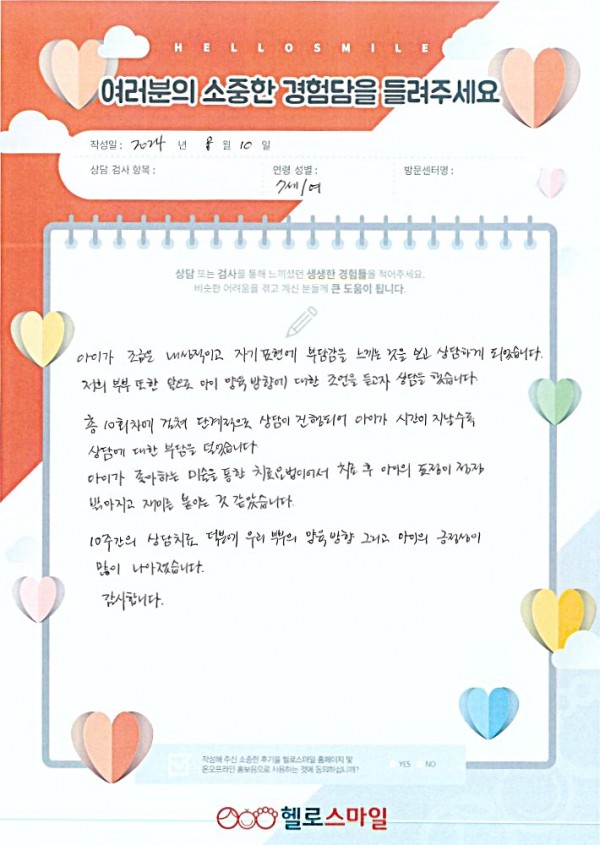 HELLOSMILE
여러분의 소중한 경험담을 들려주세요
작성일 : 2024 년 8 월 10 일
상담 검사 항목 : 연령 성별 : 7세/여 방문센터명 :
상담 또는 검사를 통해 느끼셨던 생생한 경험들을 적어주세요.
비슷한 어려움을 겪고 계신 분들께 큰 도움이 됩니다.
아이가 조금은 내성적이고 자기표현에 부담감을 느끼는 것을 보고 상담하게 되었습니다.
저희 부부 또한 앞으로 아이 양육 방향에 대한 조언을 듣고자 상담을 했습니다.
총 10회차에 걸쳐 단계적으로 상담이 진행되어 아이가 시간이 지날수록
상담에 대한 부담을 덜었습니다
아이가 좋아하는 미술을 통한 치료요법이어서 치료 후 아이의 표정이 점점
밝아지고 재미를 붙이는 것 같았습니다.
10주간의 상담치료 덕분에 우리 부부의 양육방향 그리고 아이의 긍정성이
많이 나아졌습니다.
감사합니다.
작성해 주신 소중한 후기를 헬로스마일 홈페이지 및
온오프라인 홍보용으로 사용하는 것에 동의하십니까?
YES NO
헬로스마일